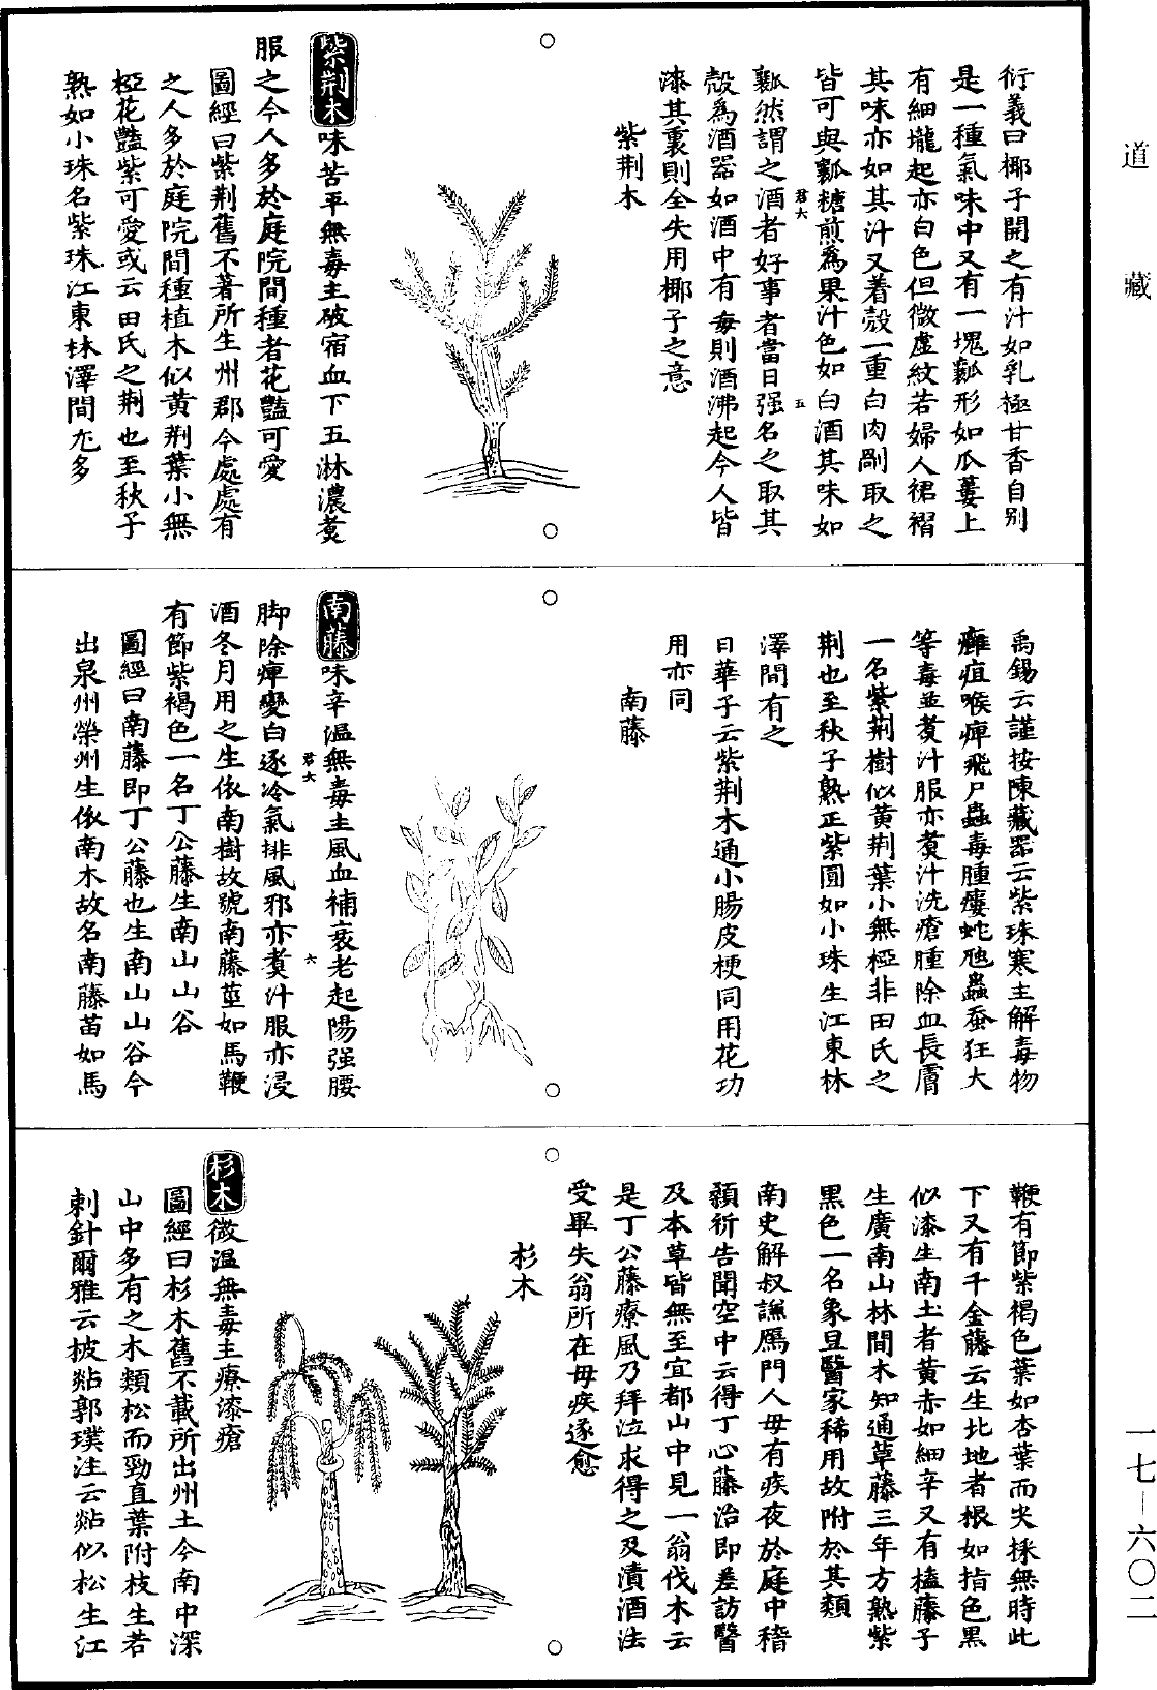 道藏
衍義曰椰子開之有汁如乳極甘香自别
是一種氣味中又有一塊瓤形如瓜蔞上
有細壠起亦白色但微虚紋若婦人裙褶
其味亦如其汁又着殼一重白肉剮取之
皆可與瓤糖煎爲果汁色如白酒其味如
君六 五
瓤然謂之酒者好事者當日强名之取其
殼爲酒器如酒中有毒則酒沸起今人皆
漆其裏則全失用椰子之意
紫荆木
紫荆木味苦平無毒主破宿血下五淋濃煑
服之今人多於庭院間種者花豔可愛
圖經曰紫荆舊不著所生州郡今處處有
之人多於庭院間種植木似黄荆葉小無
椏花豔紫可愛或云田氏之荆也至秋子
熟如小珠名紫珠江東林澤間尤多
禹錫云謹按陳藏器云紫珠寒主解毒物
癰疽喉痺飛尸蟲毒腫瘻蛇虺蟲蚕狂犬
等毒並煑汁服亦煑汁洗瘡腫除血長膚
一名紫荆樹似黄荆葉小無椏非田氏之
荆也至秋子熟正紫圓如小珠生江東林
澤間有之
日華子云紫荆木通小腸皮梗同用花功
用亦同
南藤
南藤味辛温無毒主風血補衰老起陽强腰
君六 六
脚除痺變白逐冷氣排風邪亦煑汁服亦浸
酒冬月用之生依南樹故號南藤莖如馬鞭
有節紫褐色一名丁公藤生南山山谷
圖經曰南藤即丁公藤也生南山山谷今
出泉州榮州生依南木故名南藤苗如馬
鞭有節紫褐色葉如杏葉而尖採無時此
下又有千金藤云生北地者根如指色黑
似漆生南土者黄赤如細辛又有榼藤子
生廣南山林間木知通草藤三年方熟紫
黑色一名象豆醫家稀用故附於其類
南史解叔謙鴈門人毋有疾夜於庭中稽
顙祈告聞空中云得丁心藤治即差訪醫
及本草皆無至宜都山中見一翁伐木云
是丁公藤療風乃拜泣求得之及漬酒法
受畢失翁所在毋疾遂愈
杉木
杉木微温無毒主療漆瘡
圖經曰杉木舊不載所出州土今南中深
山中多有之木類松而勁直葉附枝生若
刺針爾雅云披煔郭璞注云煔似松生江
一七—六〇二